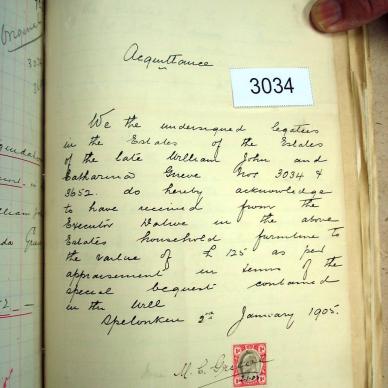 Acquittance
3034
We the undersigned legatees
in the Estates of the Estates
of the late William John and
Catharina Grieve Nos 3034 &
3652 do hereby acknowledge
to have received from the
Executor Dative in the above
Estates household furniture to
the value of £125 as per
appraisement in terms of the
special bequest contained
in the Will
Spelonken 2nd January 1905.
M. C.